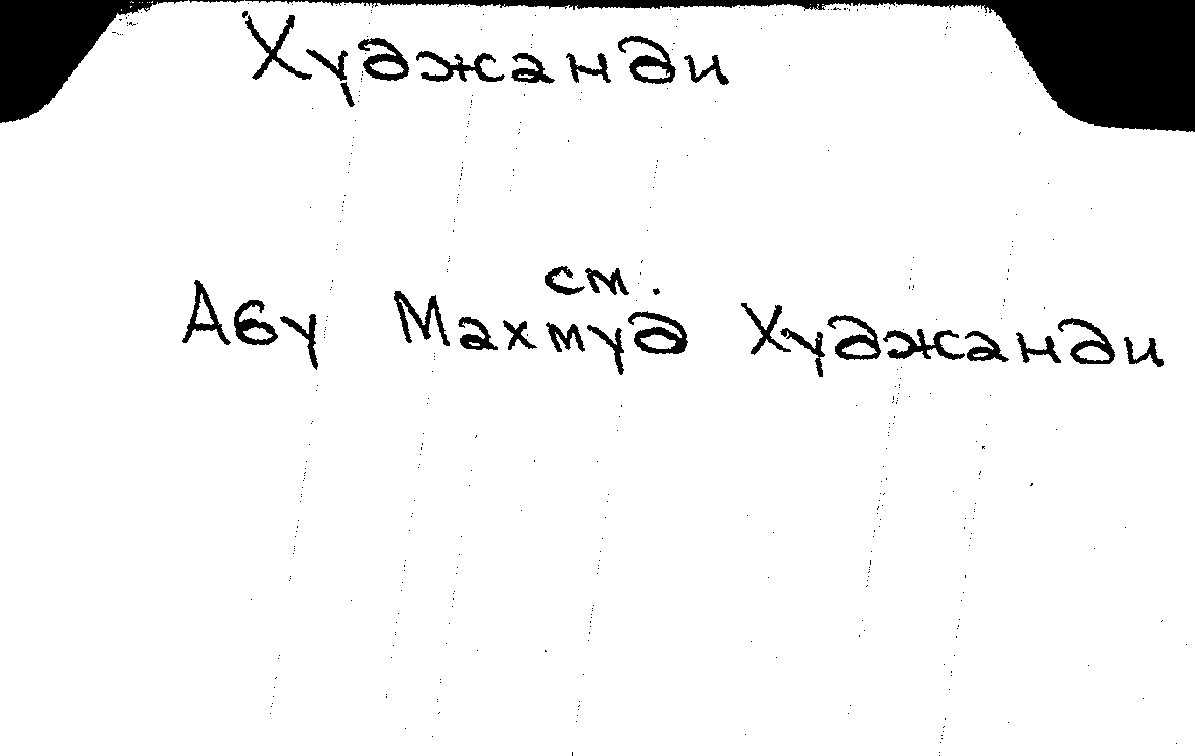 Худжанди
ст.
Абу Махмуд Худжанди